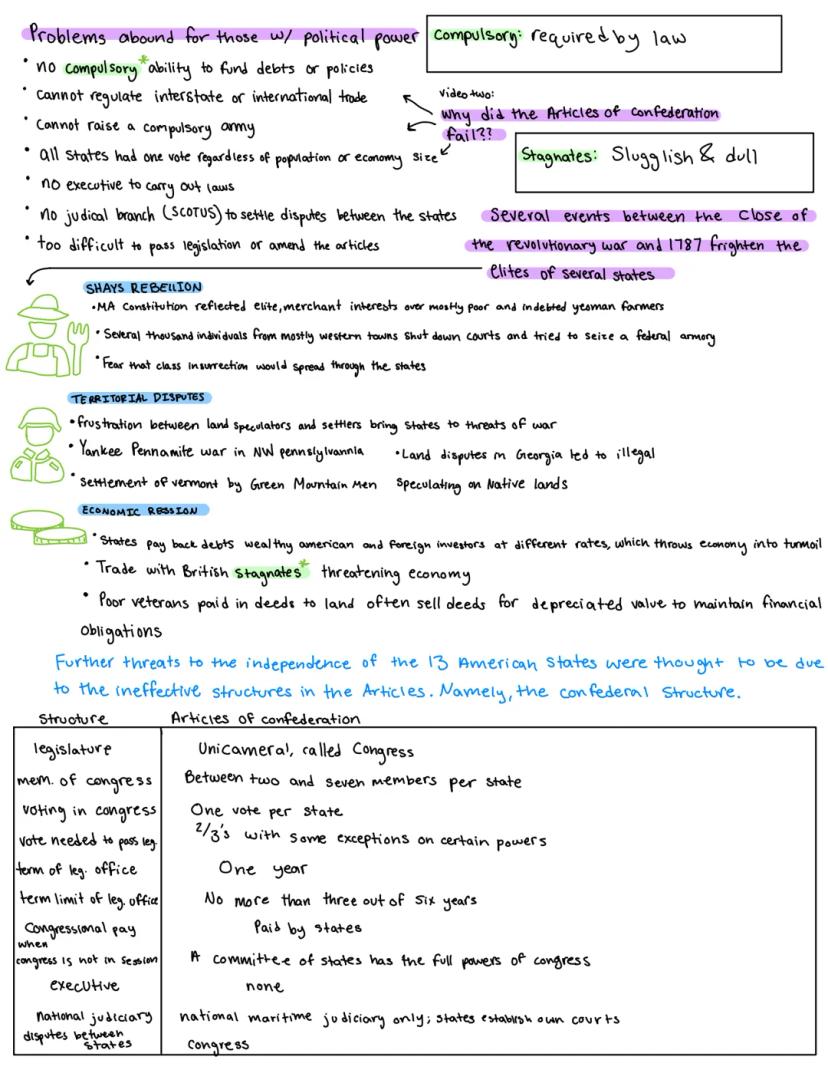 Problems abound for those w/ political power
Compulsory: required by law
• no compulsory* ability to fund debts or policies
• cannot regulate interstate or international trade
• Cannot raise a compulsory army
• all states had one vote regardless of population or economy size
• no executive to carry out laws
• no judical branch (SCOTUS) to settle disputes between the states
• too difficult to pass legislation or amend the articles
video two:
why did the Articles of confederation
fail??
Stagnates: Slugglish & dull
Several events between the close of
the revolutionary war and 1787 frighten the
elites of several states
SHAYS REBELLION
• MA Constitution reflected elite, merchant interests over mostly poor and indebted yeoman farmers
• Several thousand individuals from mostly western towns shut down courts and tried to seize a federal armory
• Fear that class insurrection would spread through the states
TERRITORIAL DISPUTES
• frustration between land speculators and settlers bring states to threats of war
• Yankee Pennamite war in NW pennslylvannia
• Settlement of vermont by Green Mountain Men
• Land disputes in Georgia led to illegal
speculating on Native lands
ECONOMIC RESSION
• States pay back debts wealthy american and foreign investors at different rates, which throws economy into turmoil
• Trade with British stagnates* threatening economy
• Poor veterans paid in deeds to land often sell deeds for depreciated value to maintain financial
obligations
Further threats to the independence of the 13 American States were thought to be due
to the ineffective structures in the Articles. Namely, the confederal structure.
Structure Articles of confederation
legislature Unicameral, called Congress
mem. of congress Between two and seven members per state
voting in congress One vote per state
vote needed to pass leg. 2/3's with some exceptions on certain powers
term of leg. office One year
term limit of leg. office No more than three out of six years
Congressional pay Paid by states
when
congress is not in session A committee of states has the full powers of congress
executive none
national judiciary national maritime judiciary only; states establish own courts
disputes between
states Congress